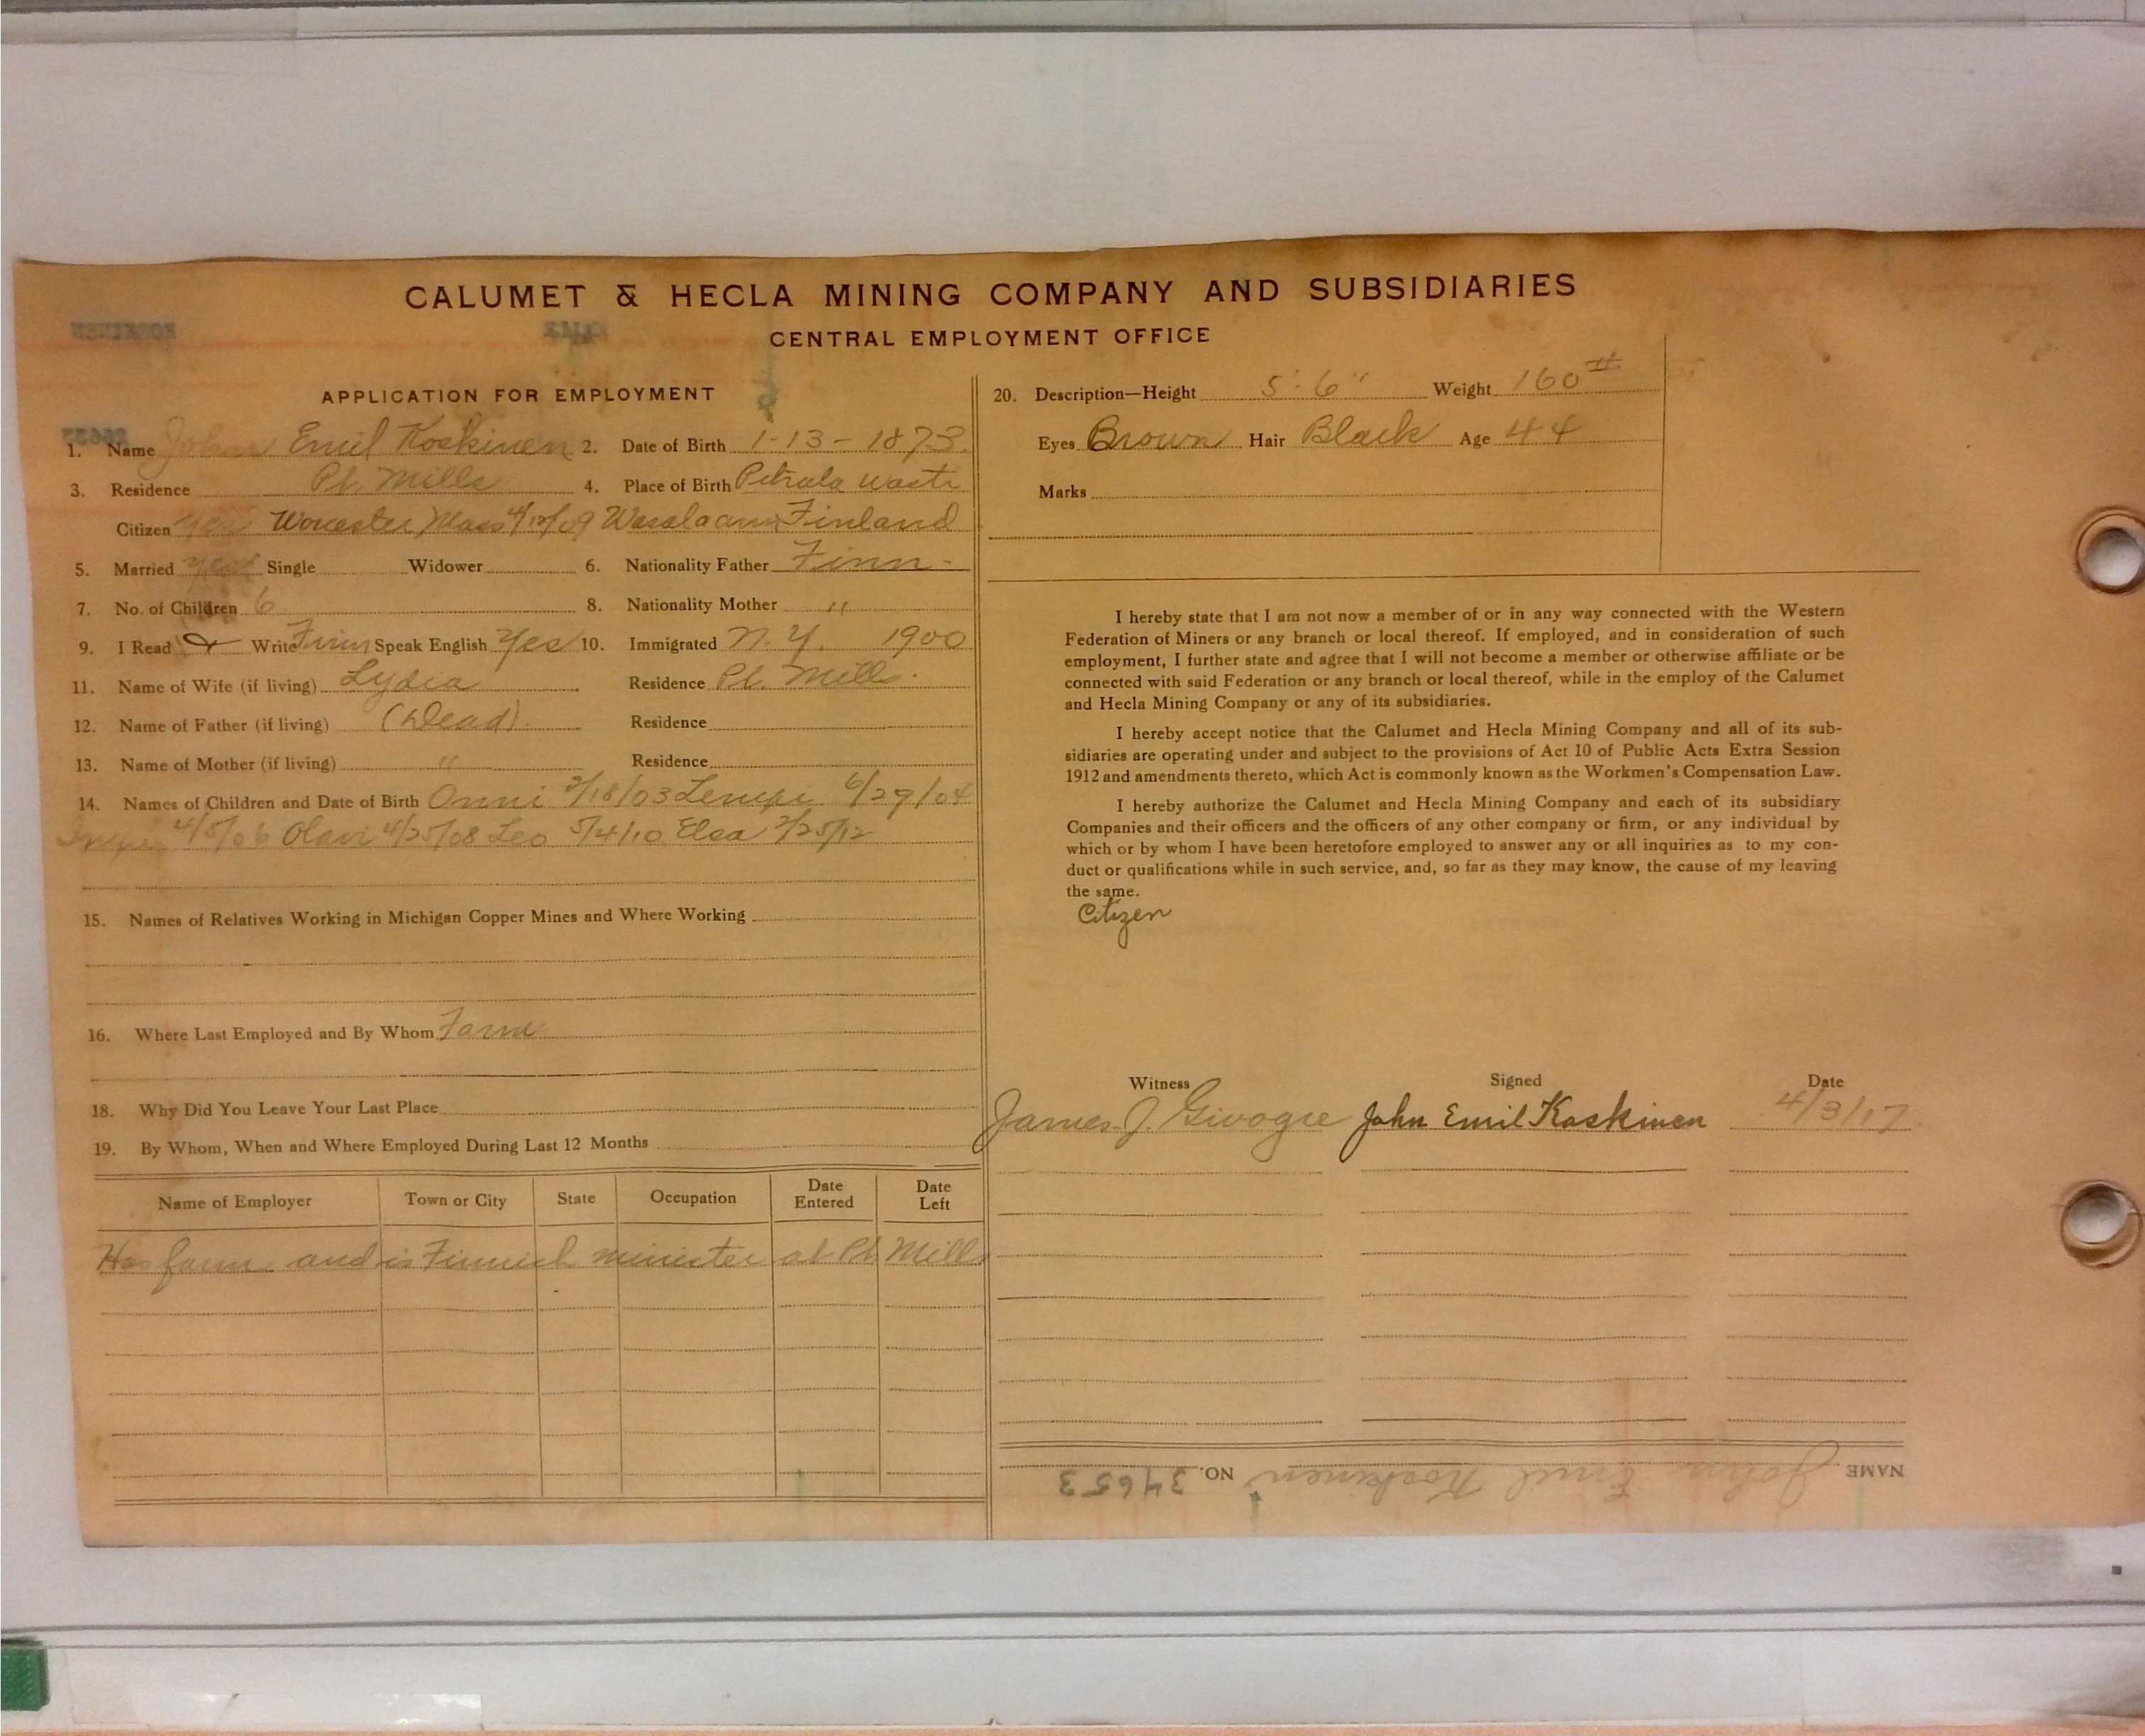 CALUMET & HECLA MINING COMPANY AND SUBSIDIARIES
CENTRAL EMPLOYMENT OFFICE
APPLICATION FOR EMPLOYMENT
1. Name John Emil Koskinen 2. Date of Birth 1-13-1873.
3. Residence Pt. Mills 4. Place of Birth
Citizen yes Worcester, Mass Finland
5. Married yes Single Widower 6. Nationality Father Finn-
7. No. of Children 6 8. Nationality Mother "
9. I Read & Write Finn Speak English Yes 10. Immigrated N.Y. 1900
11. Name of Wife (if living) Lydia Residence Pt. Mills.
12. Name of Father (if living) (Dead). Residence
13. Name of Mother (if living) " Residence
14. Names of Children and Date of Birth Onni Lempi 6/29/04
4/5/06 Olavi 4/25/08 Leo 5/4/10 Elsa
15. Names of Relatives Working in Michigan Copper Mines and Where Working
16. Where Last Employed and By Whom Farm
18. Why Did You Leave Your Last Place
19. By Whom, When and Where Employed During Last 12 Months
Name of Employer Town or City State Occupation Date Entered Date Left
Has farm and is Finnish minister at Pt. Mills
20. Description—Height 5'-6" Weight 160#
Eyes Brown Hair Black Age 44
Marks
I hereby state that I am not now a member of or in any way connected with the Western
Federation of Miners or any branch or local thereof. If employed, and in consideration of such
employment, I further state and agree that I will not become a member or otherwise affiliate or be
connected with said Federation or any branch or local thereof, while in the employ of the Calumet
and Hecla Mining Company or any of its subsidiaries.
I hereby accept notice that the Calumet and Hecla Mining Company and all of its sub-
sidiaries are operating under and subject to the provisions of Act 10 of Public Acts Extra Session
1912 and amendments thereto, which Act is commonly known as the Workmen's Compensation Law.
I hereby authorize the Calumet and Hecla Mining Company and each of its subsidiary
Companies and their officers and the officers of any other company or firm, or any individual by
which or by whom I have been heretofore employed to answer any or all inquiries as to my con-
duct or qualifications while in such service, and, so far as they may know, the cause of my leaving
the same.
Citizen
Witness Signed Date
James J. John Emil Koskinen 4/3/17
NAME John Emil Koskinen NO. 34653